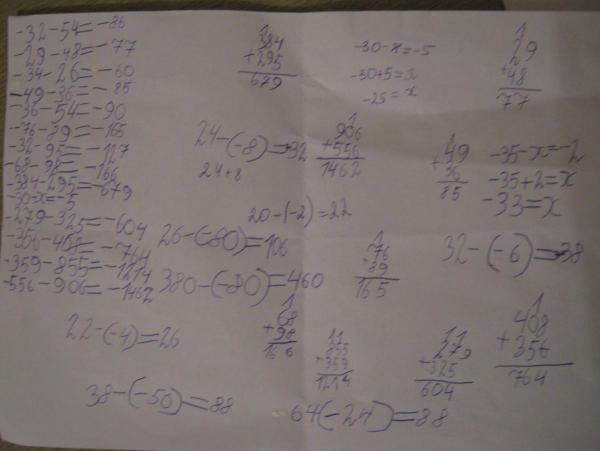 -32-54=-86
-29-48=-77
-34-26=-60
-49-36=-85
-36-54=-90
-76-89=-165
-32-95=-127
-68-98=-166
-384-295=-679
-30-x=-5
-279-325=-604
-356-408=-764
-359-855=-1214
-556-906=-1462
1
384
+295
679
-30-x=-5
-30+5=x
-25=x
1
29
+48
77
24-(-8)=32
24+8
1
906
+556
1462
1
49
+36
85
-35-x=-2
-35+2=x
-33=x
20-(-2)=22
26-(-80)=106
1
76
+89
165
32-(-6)=38
380-(-80)=460
22-(-4)=26
1
68
+98
166
11
855
+359
1214
11
279
+325
604
1
408
+356
764
38-(-50)=88
64(-24)=88